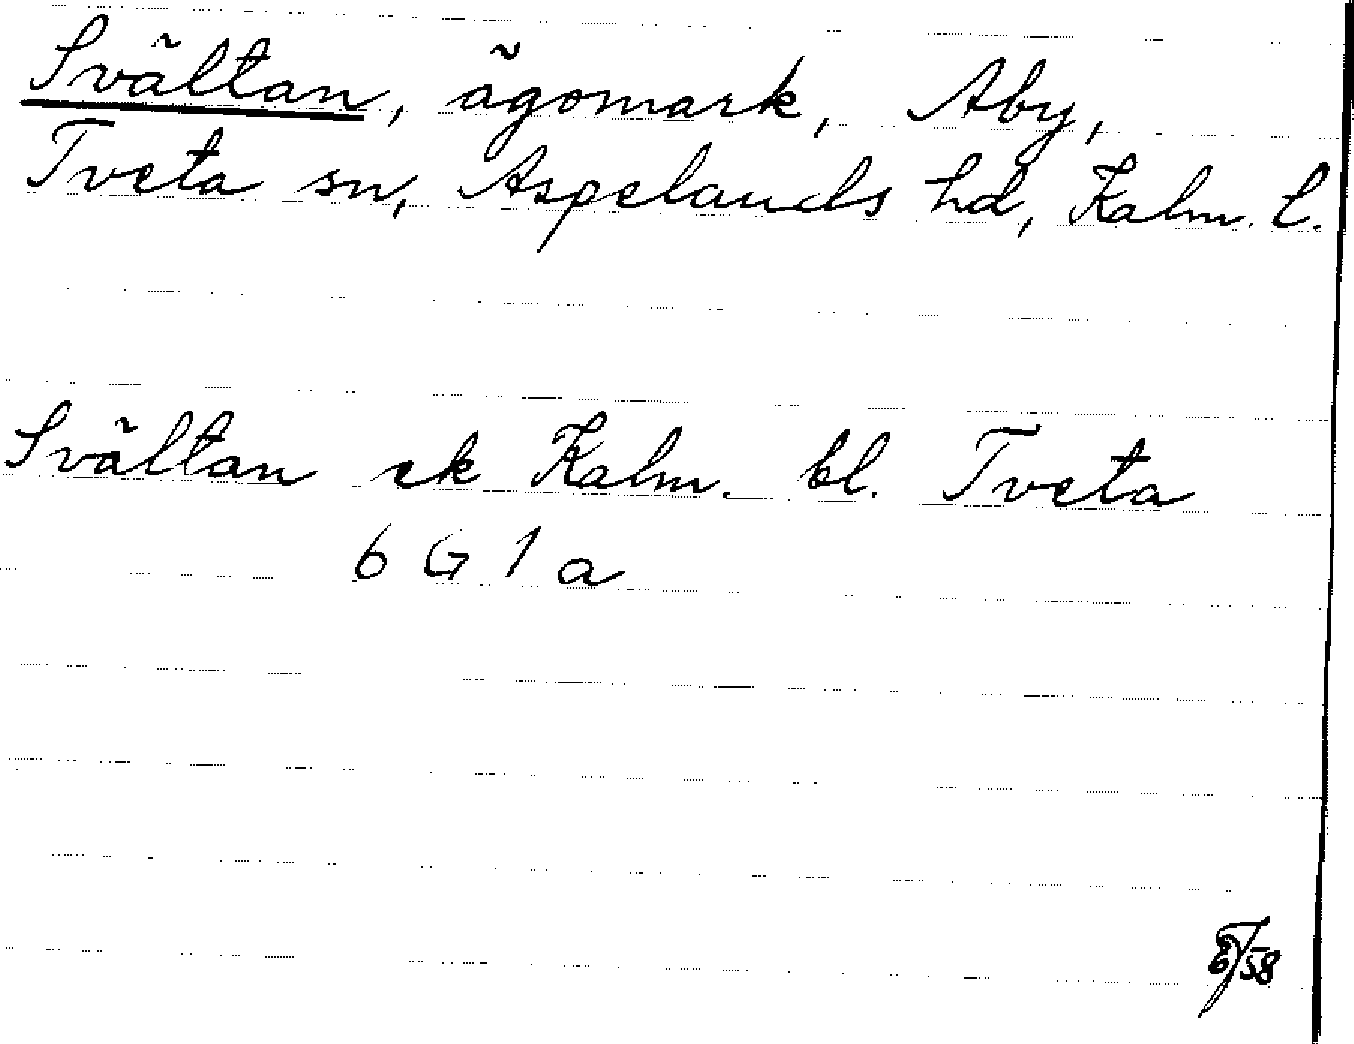 Svältan, ägomark, Åby,
Tveta sn, Aspelands hd, Kalm. l.
Svältan ek Kalm. bl. Tveta
6 G 1 a